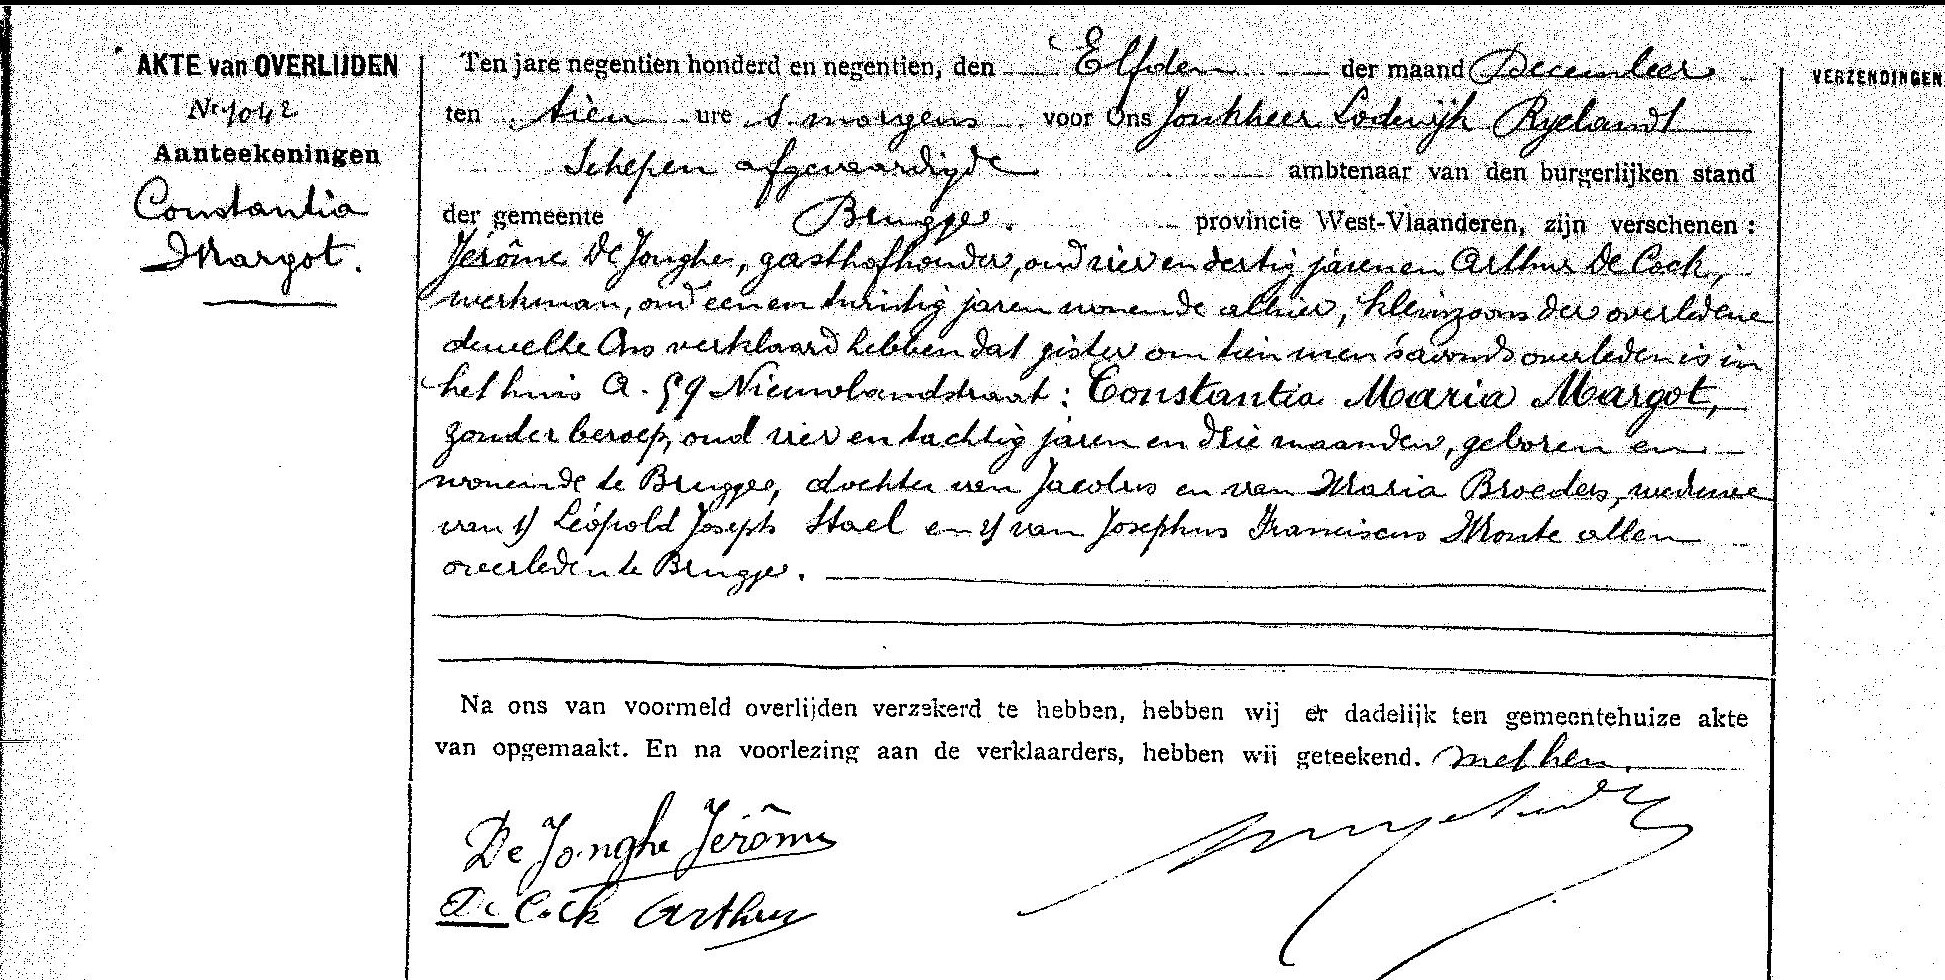 AKTE van OVERLIJDEN
Nr 1042
Aanteekeningen
Constantia
Margot.
Ten jare negentien honderd en negentien, den Elfden der maand December
ten tien ure s. morgens voor Ons Jonkheer Lodewijk Ryelandt
Schepen afgevaardigde ambtenaar van den burgerlijken stand
der gemeente Brugge. provincie West-Vlaanderen, zijn verschenen :
Jérôme De Jonghe, gasthofhouder, oud vier en dertig jaren en Arthur De Cock,
werkman, oud een en twintig jaren wonende alhier, kleinzoons der overledene
dewelke Ons verklaard hebben dat gister om tien uren s'avonds overleden is in
het huis A. 59 Nieuwlandstraat : Constantia Maria Margot,
zonder beroep, oud vier en tachtig jaren en drie maanden, geboren en
wonende te Brugge, dochter van Jacobus en van Maria Broeders, weduwe
van 1/ Léopold Joseph Stael en 2/ van Josephus Franciscus Monte allen
overleden te Brugge.
Na ons van voormeld overlijden verzekerd te hebben, hebben wij er dadelijk ten gemeentehuize akte
van opgemaakt. En na voorlezing aan de verklaarders, hebben wij geteekend. met hen.
De Jonghe Jérôme
De Cock Arthur
VERZENDINGEN